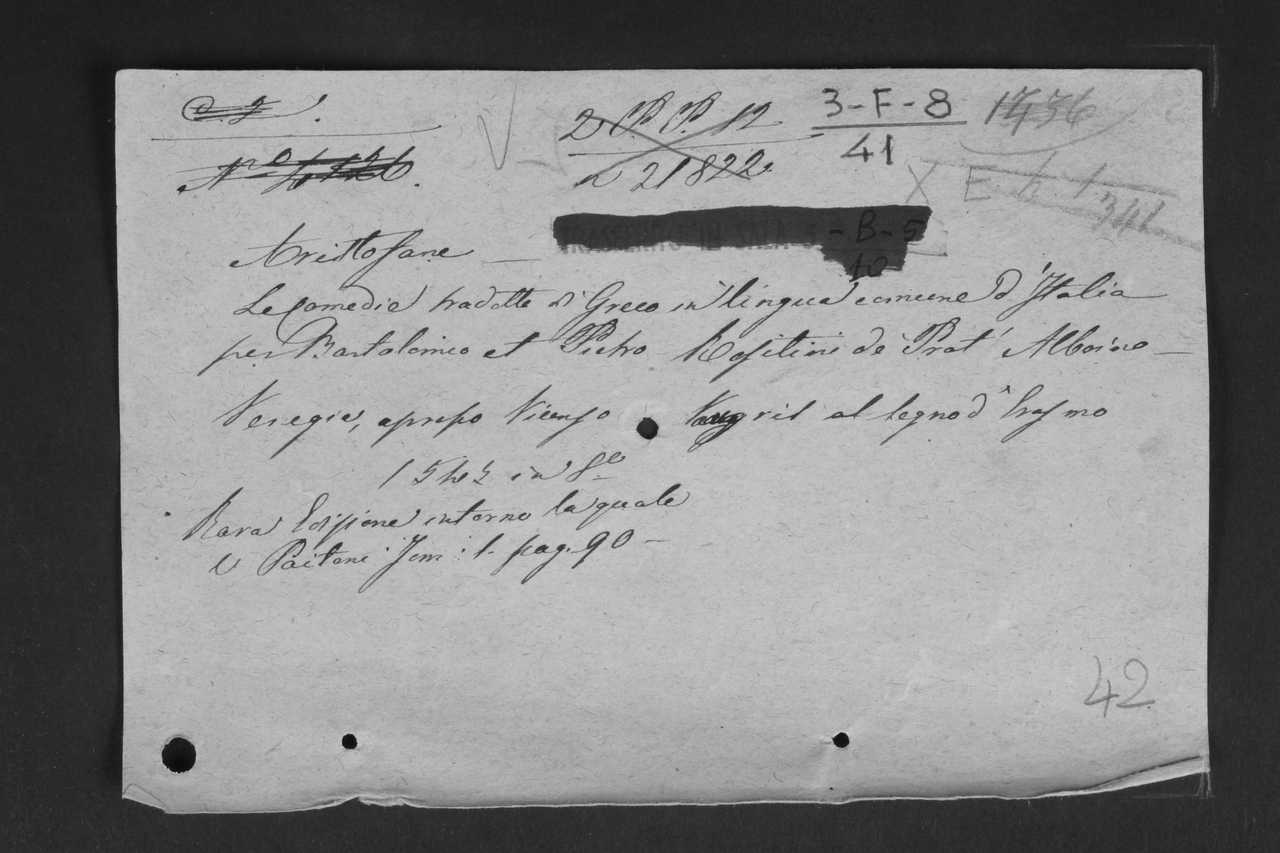 C. 2.
2 P. P. 12
3-F-8
1736
N.° 4126.
21822.
41
X E
TRASFERITO IN SALA 5 -B-5
10
Aristofane
Le Comedie tradotte di Greco in lingua comune d'Italia
per Bartolomeo et Pietro Rositini de Prat' Alboino
Venegia, apresso Vicenzo Vaugris al segno d'Erasmo
1545 in 8°
Rara Edizione intorno la quale
V Paitoni Tom: 1. pag. 90
42